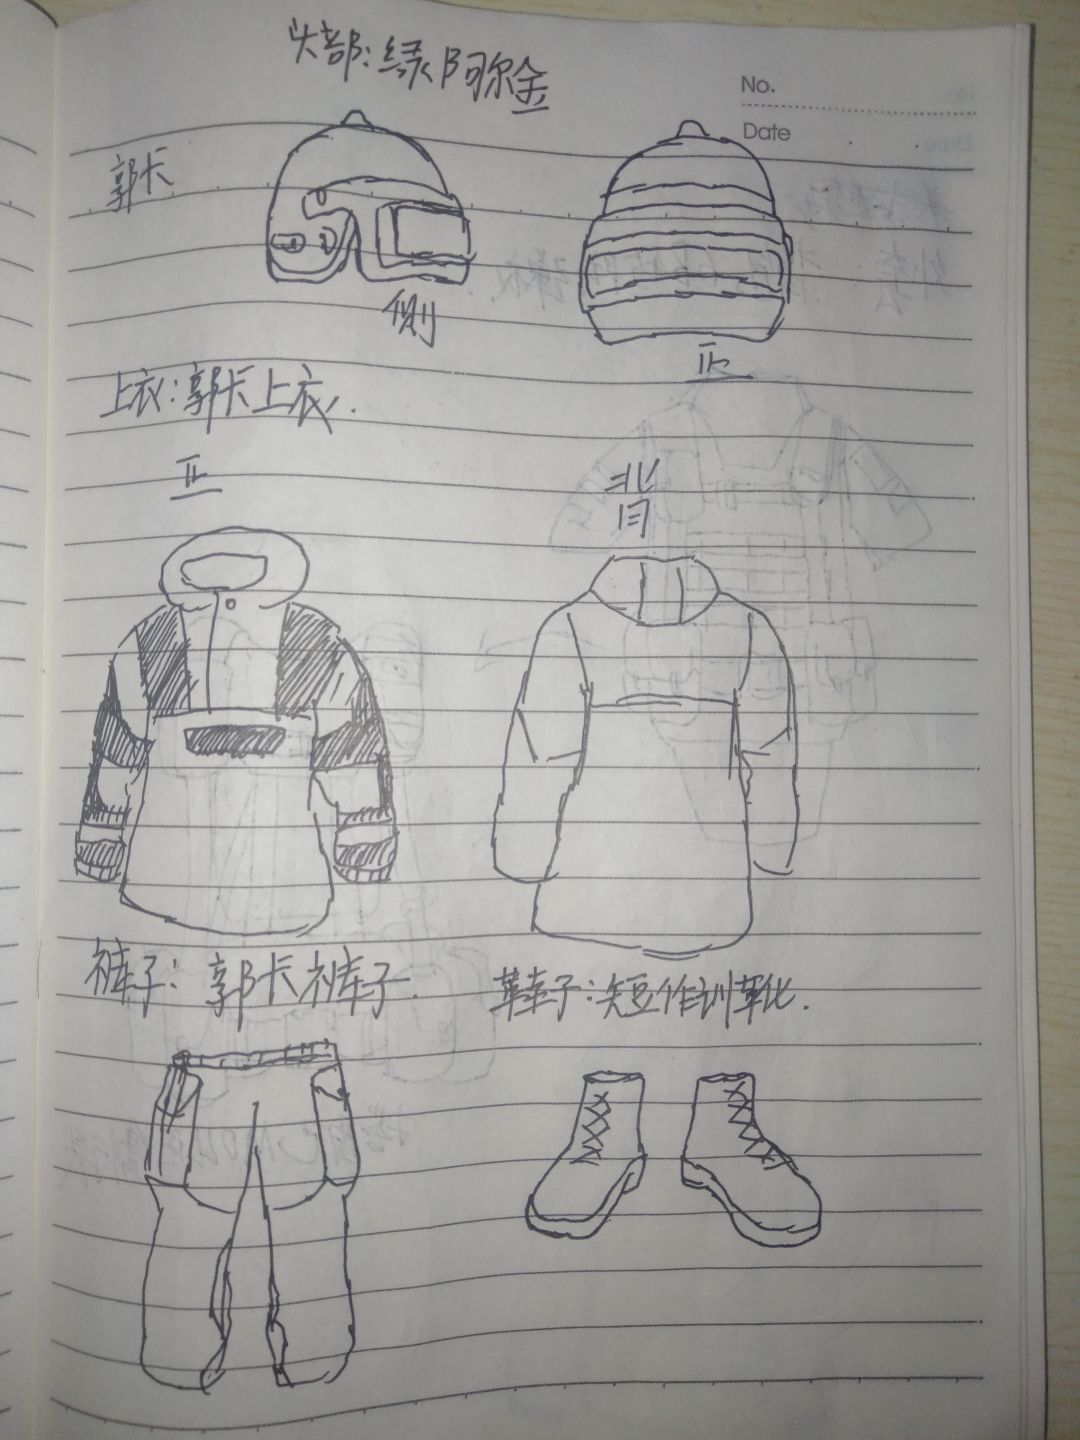 头部:绿阿尔金
No.
Date
郭卡
侧
正
上衣:郭卡上衣.
正
背
裤子:郭卡裤子.
鞋子:短作训靴.